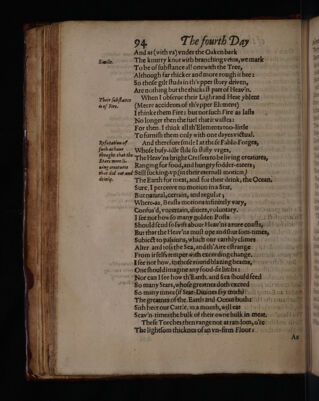 94 The fourth Day
And as (with vs) vnder the Oaken bark
Simile.
The knurry knot with branching veins, we mark
To be of substance all one with the Tree,
Although far thicker and more rough it bee:
So those gilt studs in th'vpper story driven,
Are nothing but the thickest part of Heav'n.
Their substance is of Fire.
When I obserue their Light and Heat yblent
(Meere accidents of th'vpper Element)
I thinke them Fire: but not such Fire as lasts
No longer then the fuel that it wastes:
For then, I think all th'Elements too-little
To furnish them only with one dayes victual.
Refutation of such as haue thought that the Stars were living creatures that did eat and drink.
And therfore smile I at those Fable-Forges,
Whose busy-idle stile so stifly vrges,
The Heav'ns bright Cressets to be living creatures,
Ranging for food, and hungry fodder-eaters;
Still sucking-vp (in their eternall motion)
The Earth for meat, and for their drink, the Ocean.
Sure, I perceive no motion in a Star,
But natural, certain, and regular;
Wheras, Beasts motions infinitely vary,
Confus'd, vncertain, divers, voluntary.
I see not how so many golden Posts
Should scud so swift about Heav'ns azure coasts,
But that the Heav'ns must ope and shut som-times,
Subiect to passions, which our earthly climes
Alter, and toss the Sea, and th'Aire estrange
From it selfs temper with exceeding change.
I see not how, in those round blazing beams,
One should imagine any food-fit limbs:
Nor can I see how th'Earth, and Sea should feed
So many Stars, whose greatnes doth exceed
So many times (if Star-Diuines say troth)
The greatnes of the Earth and Ocean both:
Sith heer our Cattle, in a month, will eat
Seav'n-times the bulk of their owne bulk in meat.
These Torches then range not at random, o're
The lightsom thicknes of an vn-firm Floor:
As